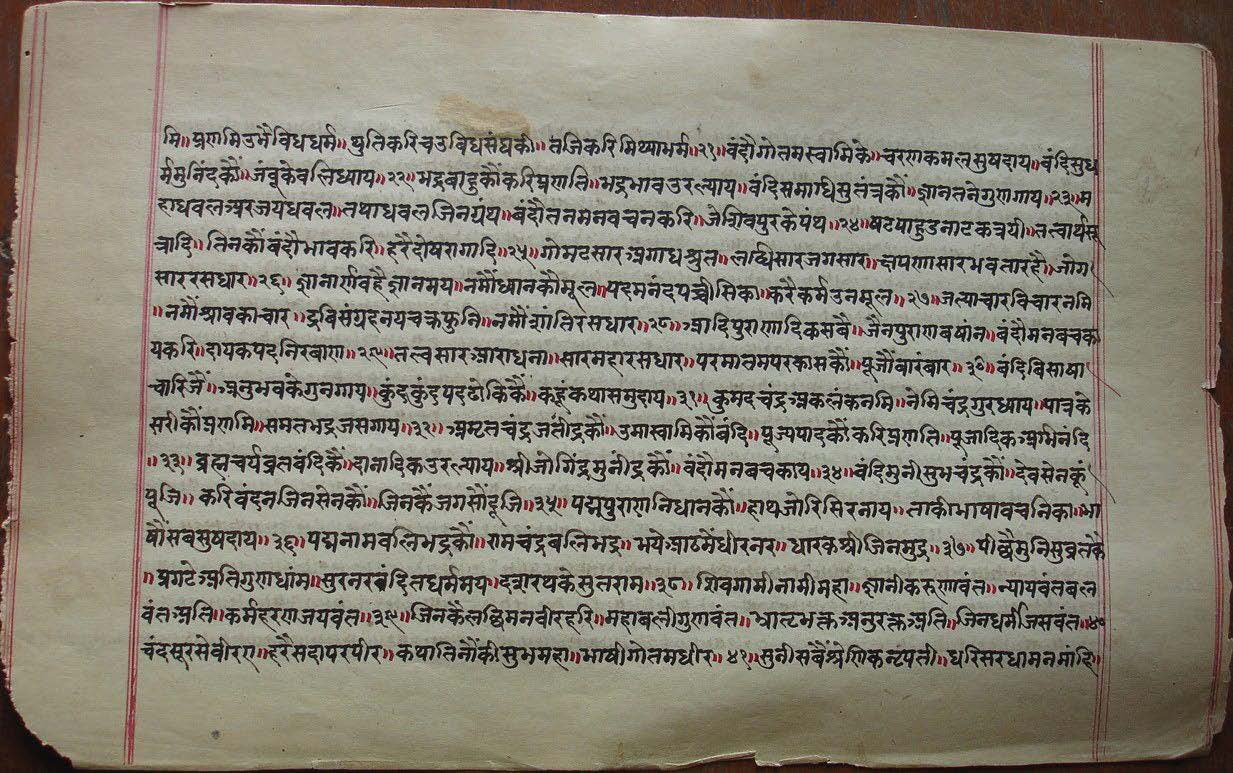 मि॥प्रणमि उभै विध धर्म॥ श्रुति करि चउ विध संघ की॥ तजि करि मिथ्या भर्म॥२१॥ वंदौ गोतम स्वामि के॥ चरण कमल सुषदाय॥ वंदि सुध
र्म मुनिंद कौं॥ जंबूकेवलि ध्याय॥२२॥ भद्रबाहु कौं करि प्रणति॥ भद्र भाव उर ल्याय॥ वंदि समाधि सुतंत्र कौं॥ ज्ञान तने गुण गाय॥२३॥ म
हाधवल अर जयधवल॥ तथा धवल जिन ग्रंथ॥ वंदौ तन मन वचन करि॥ जे शिवपुर के पंथ॥२४॥ षट पाहुड नाटक त्रयी॥ तत्वार्थ सू
त्रादि॥ तिन कौं वंदौ भाव करि॥ हरै दोष रागादि॥२५॥ गोमटसार अगाध श्रुत॥ लब्धिसार जगसार॥ क्षपणासार भवतार है॥ जोग
सार रस धार॥२६॥ ज्ञानार्णव है ज्ञानमय॥ नमौं ध्यान कौ मूल॥ पदमनंद पच्चीसिका॥ करै कर्म उनमूल॥२७॥ जत्याचार विचार नमि
॥ नमौं श्रावकाचार॥ द्रविसंग्रह नयचक्र फुनि॥ नमौं शांति रस धार॥२८॥ आदि पुराणादिक सबै॥ जैन पुराण बषांन॥ वंदौ मन वच क
य करि॥ दायक पद निरबाण॥२९॥ तत्वसार आराधना॥ सार महारस धार॥ परमातमपरकास कौं॥ पूजौं बारंबार॥३०॥ वंदि विसाषा
चारिजौं॥ अनुभव के गुन गाय॥ कुंदकुंद पद ढोकि कैं॥ कहूं कथा समुदाय॥३१॥ कुमदचंद्र अकलंक नमि॥ नेमिचंद्र गुर ध्याय॥ पात्र के
सरी कौं प्रणमि॥ समतभद्र जस गाय॥३२॥ अमृतचंद्र जतींद्र कौं॥ उमास्वामि कौं वंदि॥ पूज्यपाद कौं करि प्रणति॥ पूजादिक अभिनंदि
॥३३॥ ब्रह्मचर्यव्रत वंदि कैं॥ दानादिक उर ल्याय॥ श्री जोगिंद्र मुनींद्र कौं॥ वंदौ मन वच काय॥३४॥ वंदि मुनी सुभचंद्र कौं॥ देवसेन कूं
पूजि॥ करि वंदन जिनसेन कौं॥ जिन कै जग सौं दूजि॥३५॥ पद्मपुराण निधान कौं॥ हाथ जोरि सिर नाय॥ ताकी भाषा वचनिका॥ भा
षौं सब सुषदाय॥३६॥ पद्म नाम बलिभद्र कौं॥ रामचंद्र बलिभद्र॥ भये आठमैं धीर नर॥ धारक श्री जिन मुद्र॥३७॥ पीछै मुनिसुव्रत कै
॥ प्रगटे अति गुणधांम॥ सुर नर वंदित धर्ममय॥ दशरथ के सुत राम॥३८॥ शिवगामी नामी महा॥ ज्ञानी करुणावंत॥ न्यायवंत बल
वंत अति॥ कर्महरण जयवंत॥३९॥ जिन कै लछिमन वीर हरि॥ महाबली गुणवंत॥ भ्रातृभक्त अनुरक्त अति॥ जिनधर्मी जसवंत॥४०
चंद सूर से वीर ए॥ हरै सदा पर पीर॥ कथा तिनौं की सुभ महा॥ भाषी गोतम धीर॥४१॥ सुनी सबैं श्रेणिक नृपती॥ धरि सरधा मन मांहि॥